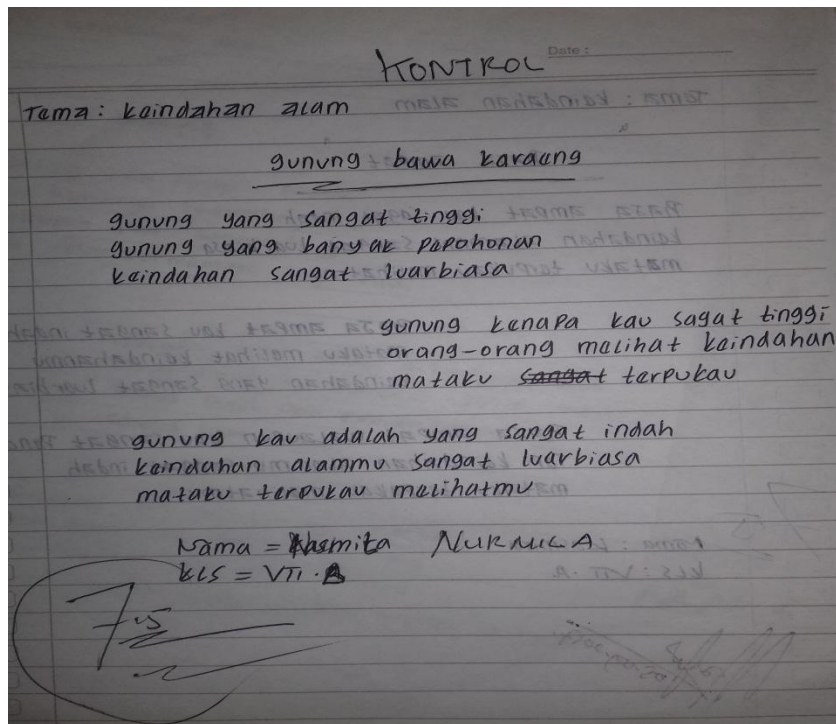 KONTROL
Date :
Tema : keindahan alam
gunung bawa karaeng
gunung yang sangat tinggi
gunung yang banyak pepohonan
keindahan sangat luarbiasa
gunung kenapa kau sagat tinggi
orang-orang melihat keindahan
mataku sangat terpukau
gunung kau adalah yang sangat indah
keindahan alammu sangat luarbiasa
mataku terpukau melihatmu
Nama = NURMILA
kls = VII.